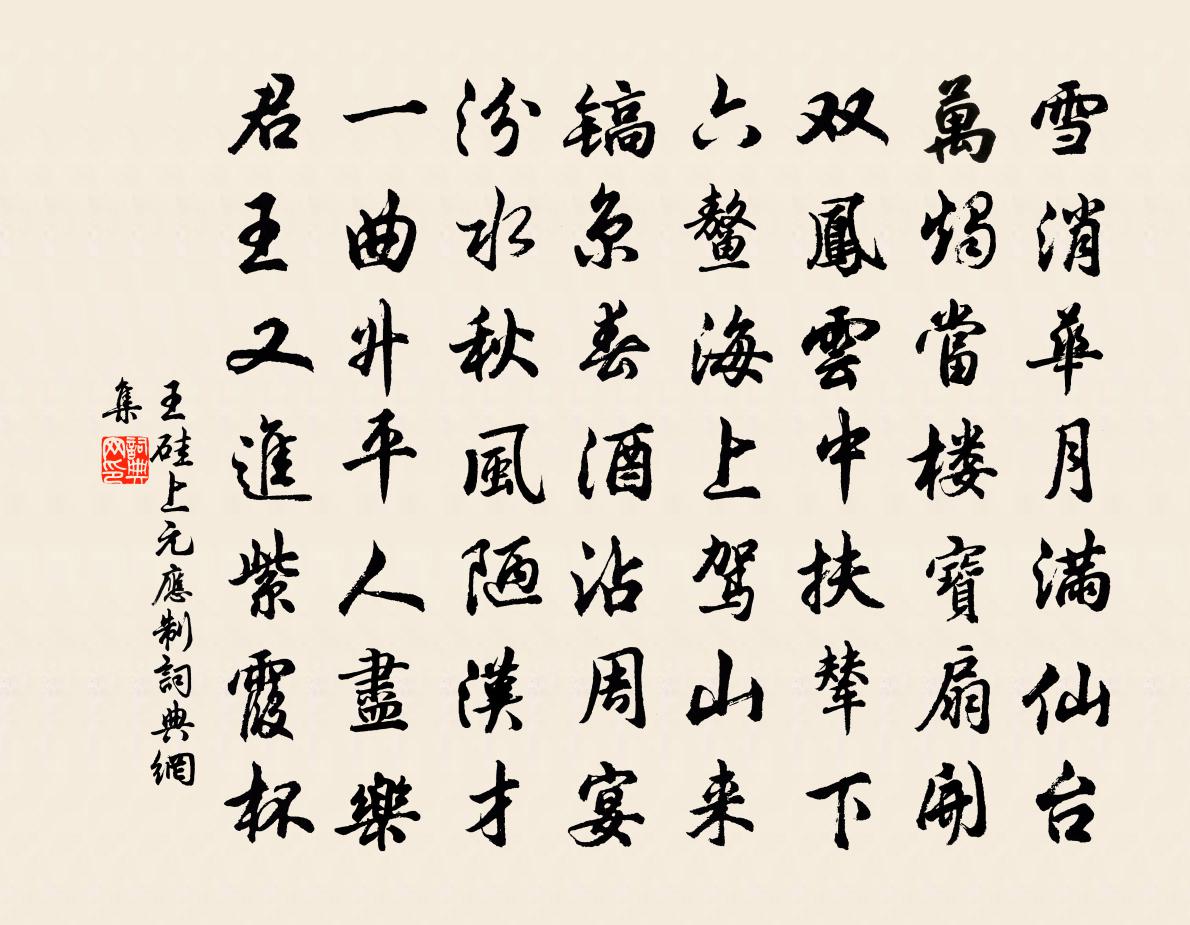 雪消華月满仙台
萬燭當楼寶扇開
双鳳雲中扶輦下
六鳌海上驾山来
镐京春酒沾周宴
汾水秋風陋漢才
一曲升平人盡樂
君王又進紫霞杯
王硅上元應制詞典網
集
詞典网印